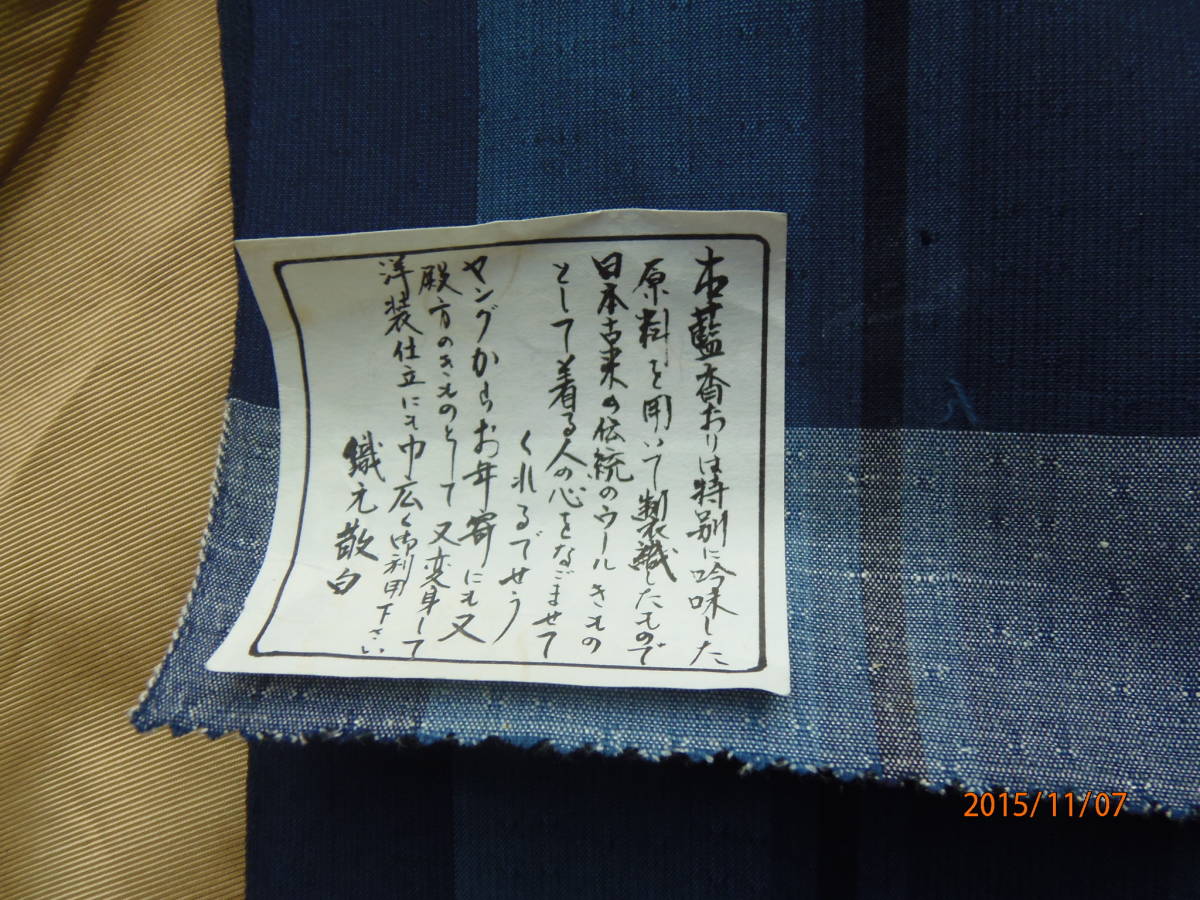 古藍斎おりは特別に吟味した
原料を用いて製織したもので
日本古来の伝統のウールきもの
として着る人の心をなごませて
くれるでせう
ヤングからお年寄にも又
殿方のきものとして又変身して
洋装仕立にも巾広く御利用下さい
織元敬白
2015/11/07